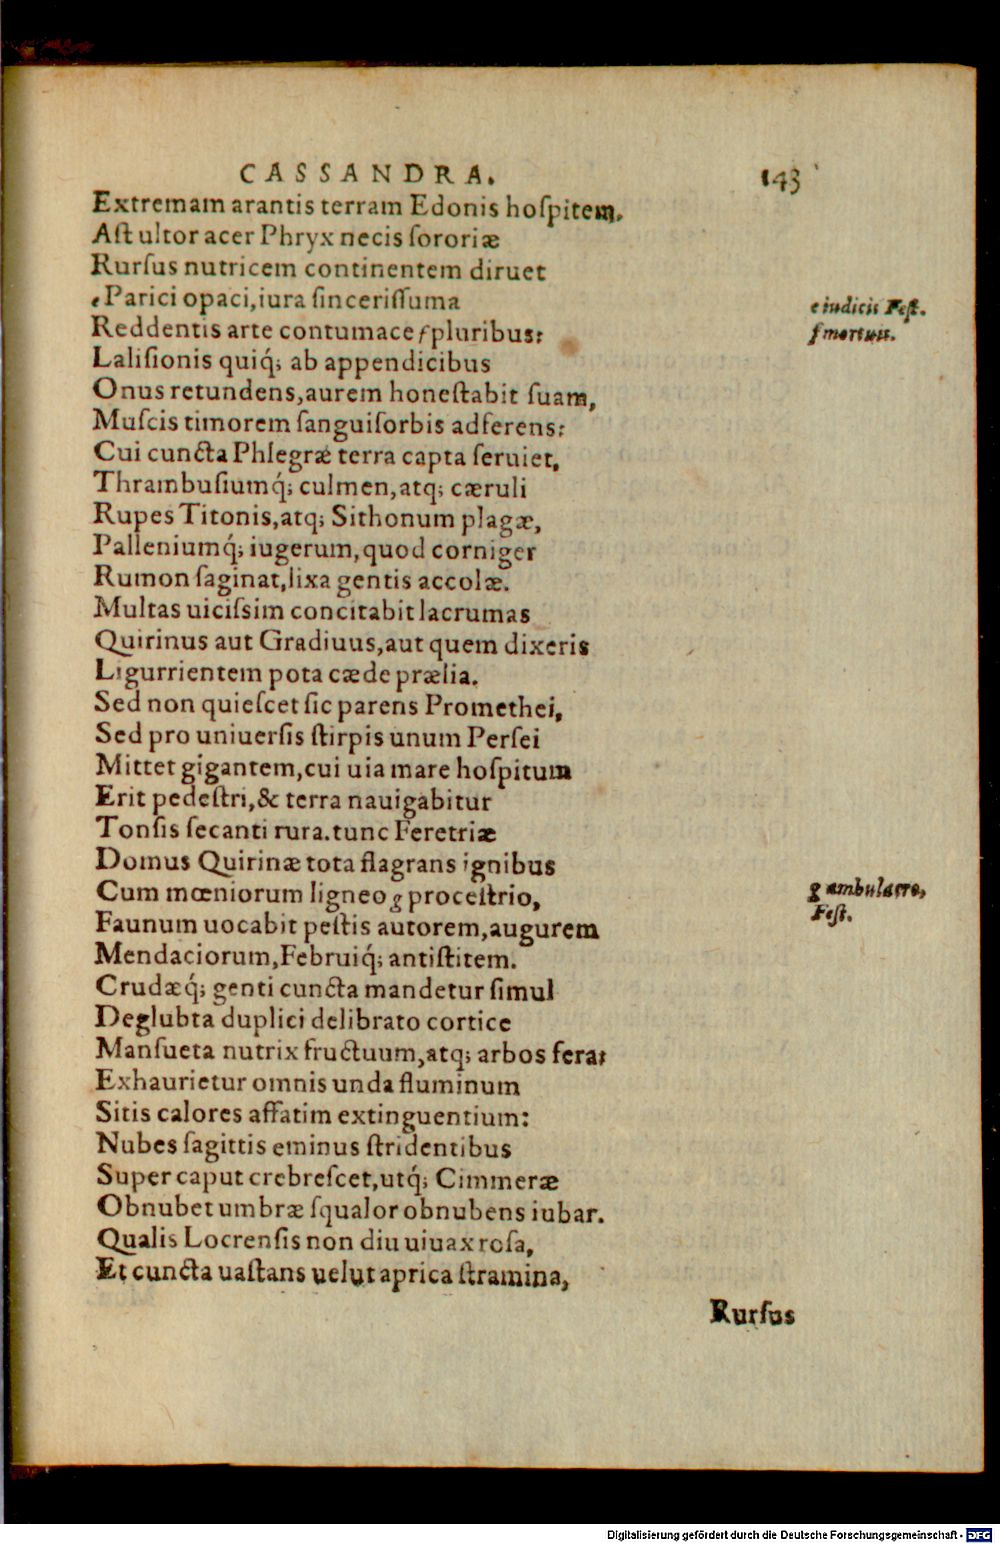 CASSANDRA. 143
Extremam arantis terram Edonis hoſpitem.
Aſt ultor acer Phryx necis ſororiæ
Rurſus nutricem continentem diruet
e Parici opaci, iura ſinceriſſuma
e iudicii Feſt.
Reddentis arte contumace f pluribus:
f mortuis.
Laliſionis quiq́; ab appendicibus
Onus retundens, aurem honeſtabit ſuam,
Muſcis timorem ſanguiſorbis adferens:
Cui cuncta Phlegræ terra capta ſeruiet,
Thrambuſiumq́; culmen, atq; cæruli
Rupes Titonis, atq; Sithonum plagæ,
Palleniumq́; iugerum, quod corniger
Rumon ſaginat, lixa gentis accolæ.
Multas uiciſsim concitabit lacrumas
Quirinus aut Gradiuus, aut quem dixeris
Ligurrientem pota cæde prælia.
Sed non quieſcet ſic parens Promethei,
Sed pro uniuerſis ſtirpis unum Perſei
Mittet gigantem, cui uia mare hoſpitum
Erit pedeſtri, & terra nauigabitur
Tonſis ſecanti rura. tunc Feretriæ
Domus Quirinæ tota flagrans ignibus
Cum mœniorum ligneo g proceſtrio,
g ambulacro,
Feſt.
Faunum uocabit peſtis autorem, augurem
Mendaciorum, Februiq́; antiſtitem.
Crudæq́; genti cuncta mandetur ſimul
Deglubta duplici delibrato cortice
Manſueta nutrix fructuum, atq; arbos fera:
Exhaurietur omnis unda fluminum
Sitis calores affatim extinguentium:
Nubes ſagittis eminus ſtridentibus
Super caput crebreſcet, utq́; Cimmeræ
Obnubet umbræ ſqualor obnubens iubar.
Qualis Locrenſis non diu uiuax roſa,
Et cuncta uaſtans uelut aprica ſtramina,
Rurſus
Digitalisierung gefördert durch die Deutsche Forschungsgemeinschaft - DFG